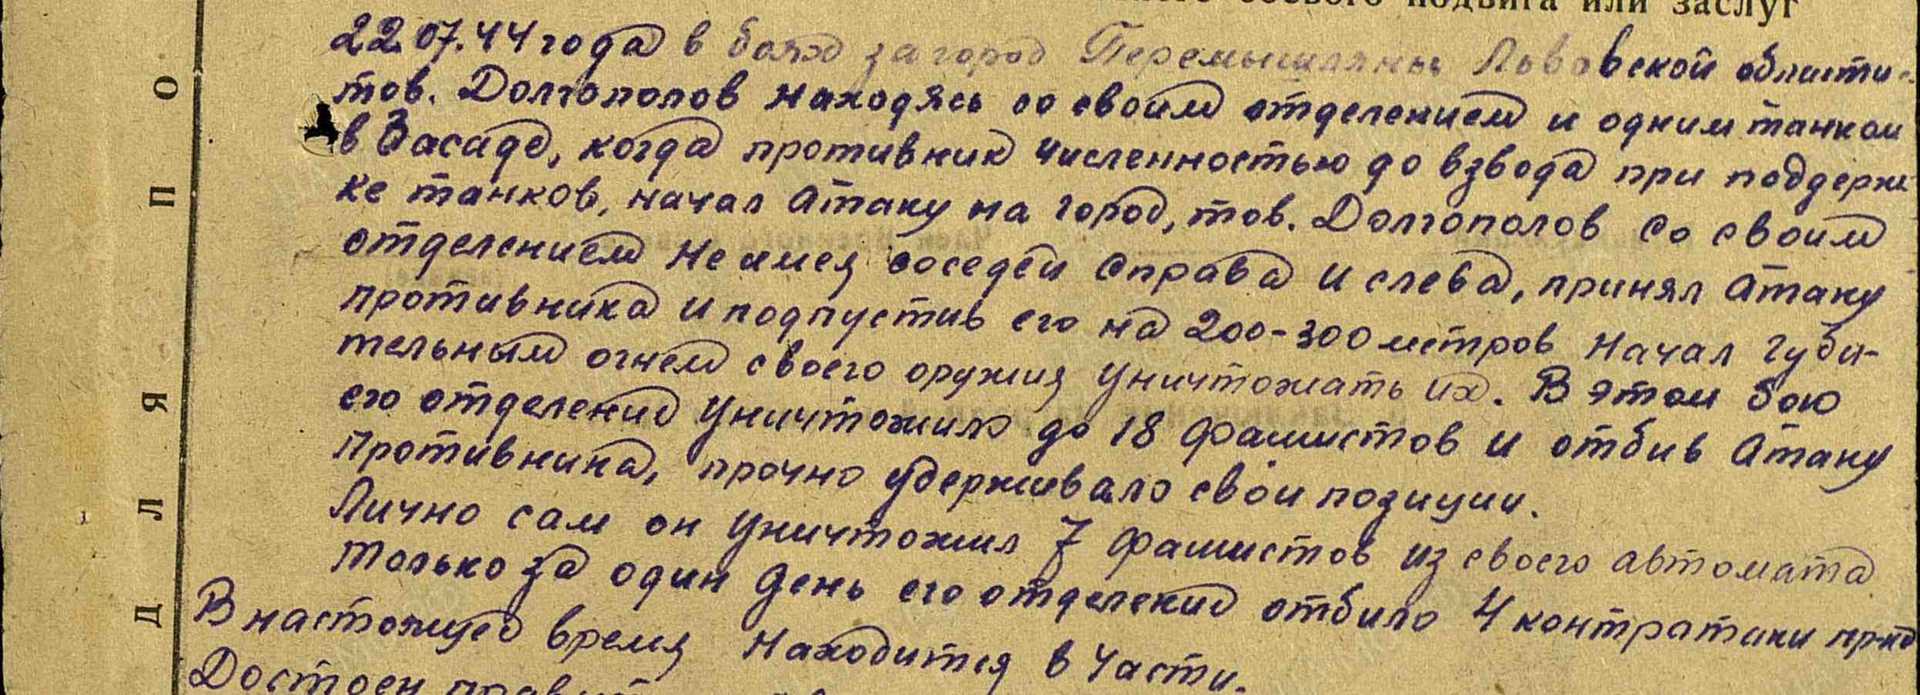 боевого подвига или заслуг
22.07.44 года в боях за город Перемышляны Львовской области
тов. Долгополов находясь со своим отделением и одним танком
в Засаде, когда противник численностью до взвода при поддерж
ке танков, начал Атаку на город, тов. Долгополов со своим
отделением не имея соседей справа и слева, принял Атаку
противника и подпустив его на 200-300 метров начал губи-
тельным огнем своего оружия уничтожать их. В этом бою
его отделение уничтожило до 18 фашистов и отбив Атаку
противника, прочно удерживало свои позиции.
Лично сам он уничтожил 7 фашистов из своего автомата
только за один день его отделение отбило 4 контратаки пр-ка
В настоящее время находится в части.
Достоен
Д Л Я П О